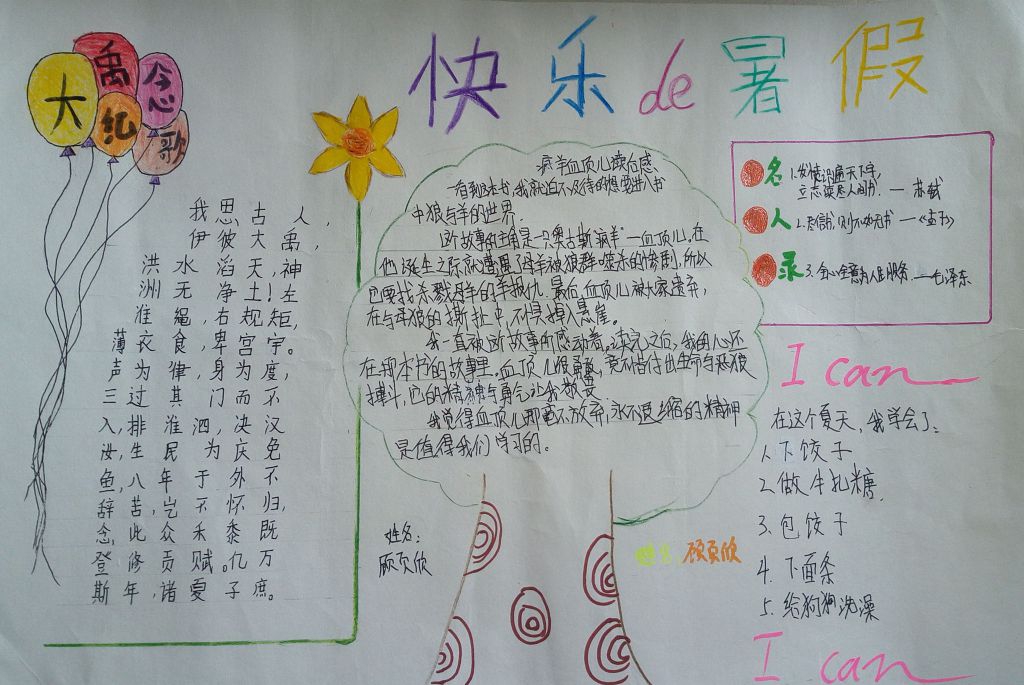 快乐de暑假
大禹纪念歌
我思古人，
伊彼大禹，
洪水滔天，神
洲无净土！左
准绳，右规矩，
薄衣食，卑宫宇。
声为律，身为度，
三过其门而不
入，排淮泗，决汉
汝，生民为庆免
鱼，八年于外不
辞苦，岂不怀归，
念此众禾黍既
登修贡赋。亿万
斯年，诸夏子庶。
疯羊血顶儿读后感
一看到这本书，我就迫不及待的想要进入书
中狼与羊的世界。
这个故事的主角是一只奥古斯疯羊—血顶儿。在
他诞生之际就遭遇了母羊被狼群噬杀的惨剧，所以
它要找杀戮母羊的羊报仇。最后，血顶儿被大家遗弃，
在与耳狼的撕扯中，不惧掉入悬崖。
我一直被这个故事所感动着，读完之后，我的心还
在那本书的故事里，血顶儿很勇敢，竟不惜付出生命与恶狼
搏斗，它的精神与勇气让我敬畏
我觉得血顶儿那毫不放弃，永不退缩的精神
是值得我们学习的。
姓名：
顾页欣
姓名：顾页欣
名人录
1.发愤识遍天下字，
立志读尽人间书。— 苏轼
2.尽信书，则不如无书 —《孟子》
3.全心全意为人民服务。—毛泽东
I can
在这个夏天，我学会了：
1.下饺子
2.做牛扎糖
3.包饺子
4.下面条
5.给狗狗洗澡
I can